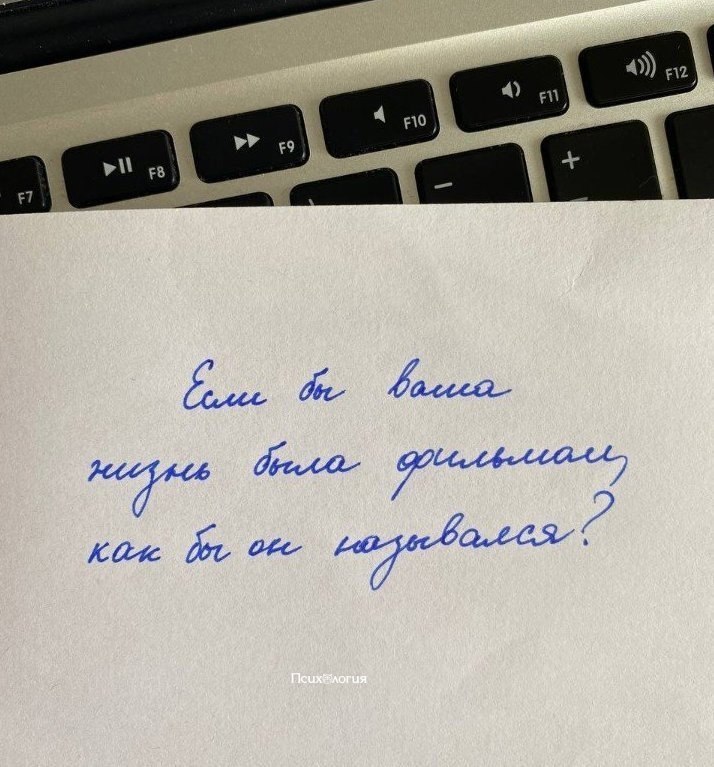 F7
F8
F9
F10
F11
F12
Если бы ваша
жизнь была фильмом,
как бы он назывался?
Психология